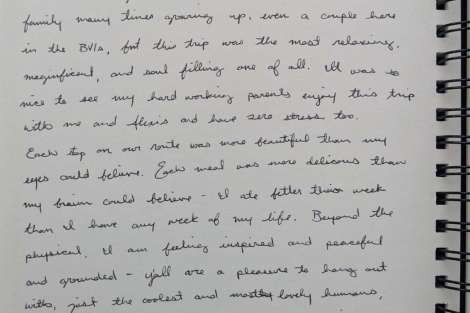 family many times growing up, even a couple here
in the BVIs, but this trip was the most relaxing,
magnificent, and soul filling one of all. It was so
nice to see my hard working parents enjoy this trip
with me and and have zero stress too.
Each stop on our route was more beautiful than my
eyes could believe. Each meal was more delicious than
my brain could believe - I ate better this week
than I have any week of my life. Beyond the
physical, I am feeling inspired and peaceful
and grounded - y'all are a pleasure to hang out
with, just the coolest and lovely humans,